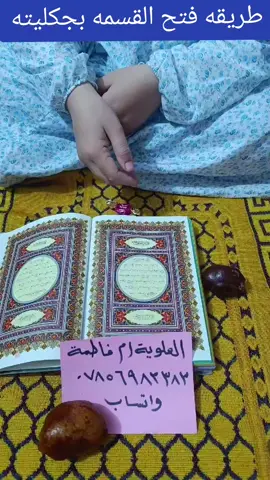 طريقه فتح القسمه بجكليته
العلوية ام فاطمة
٠٧٨٥٦٩٨٣٣٨٣
واتساب